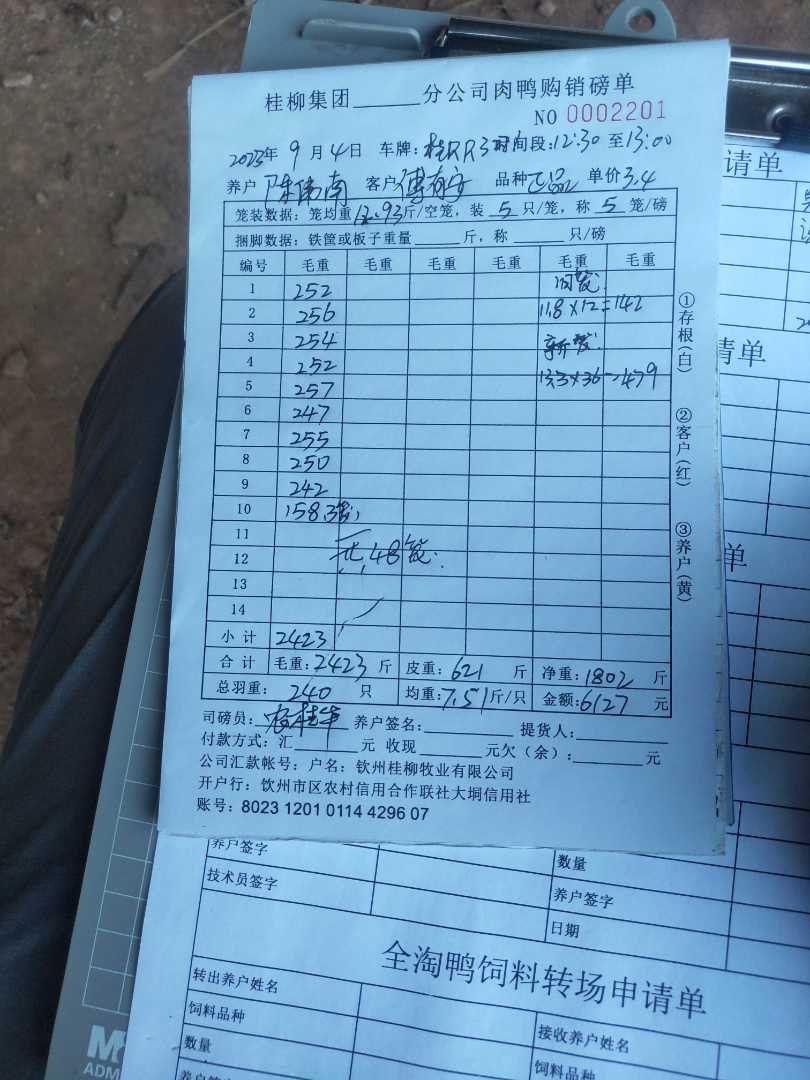 桂柳集团______分公司肉鸭购销磅单
NO 0002201
2023年 9 月 4 日 车牌: 时间段:12:30 至13:00
养户 陈伟南 客户 傅有安 品种 正品 单价3.4
笼装数据: 笼均重12.93斤/空笼, 装 5 只/笼, 称 5 笼/磅
捆脚数据: 铁筐或板子重量______斤, 称______只/磅
编号 毛重 毛重 毛重 毛重 毛重 毛重
1 252
2 256 11.8×12=142
3 254
4 252
5 257 13.3×36=479
6 247
7 255
8 250
9 242
10 158.3
11
12 共48笼.
13
14
小计 2423
合计 毛重:2423斤 皮重:621 斤 净重:1802 斤
总羽重: 240 只 均重:7.51斤/只 金额:6127 元
司磅员: 养户签名:______ 提货人:______
付款方式: 汇______元 收现______元欠(余):______元
公司汇款帐号: 户名: 钦州桂柳牧业有限公司
开户行: 钦州市区农村信用合作联社大垌信用社
账号: 8023 1201 0114 4296 07
①存根(白)
②客户(红)
③养户(黄)
请单
青单
单
养户签字
数量
技术员签字
养户签字
日期
全淘鸭饲料转场申请单
转出养户姓名
接收养户姓名
饲料品种
饲料品种
数量
M
ADM